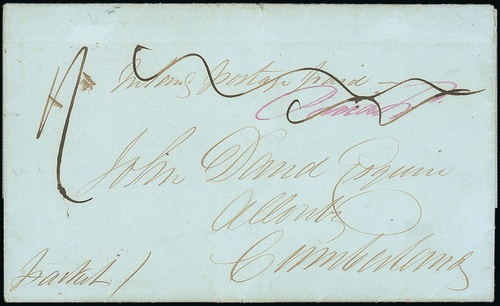 Inland postage paid
Paid
John Dand Esquire
Allonby
Cumberland
packet /